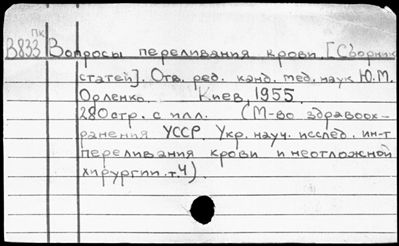 ПК
В833 Вопросы переливания крови. [Сборник
статей]. Отв. ред. канд. мед. наук Ю.М.
Орленко. Киев, 1955.
280стр. с илл. (М-во здравоох-
ранения УССР. Укр. науч. исслед. ин-т
переливания крови и неотложной
хирургии. т.4).